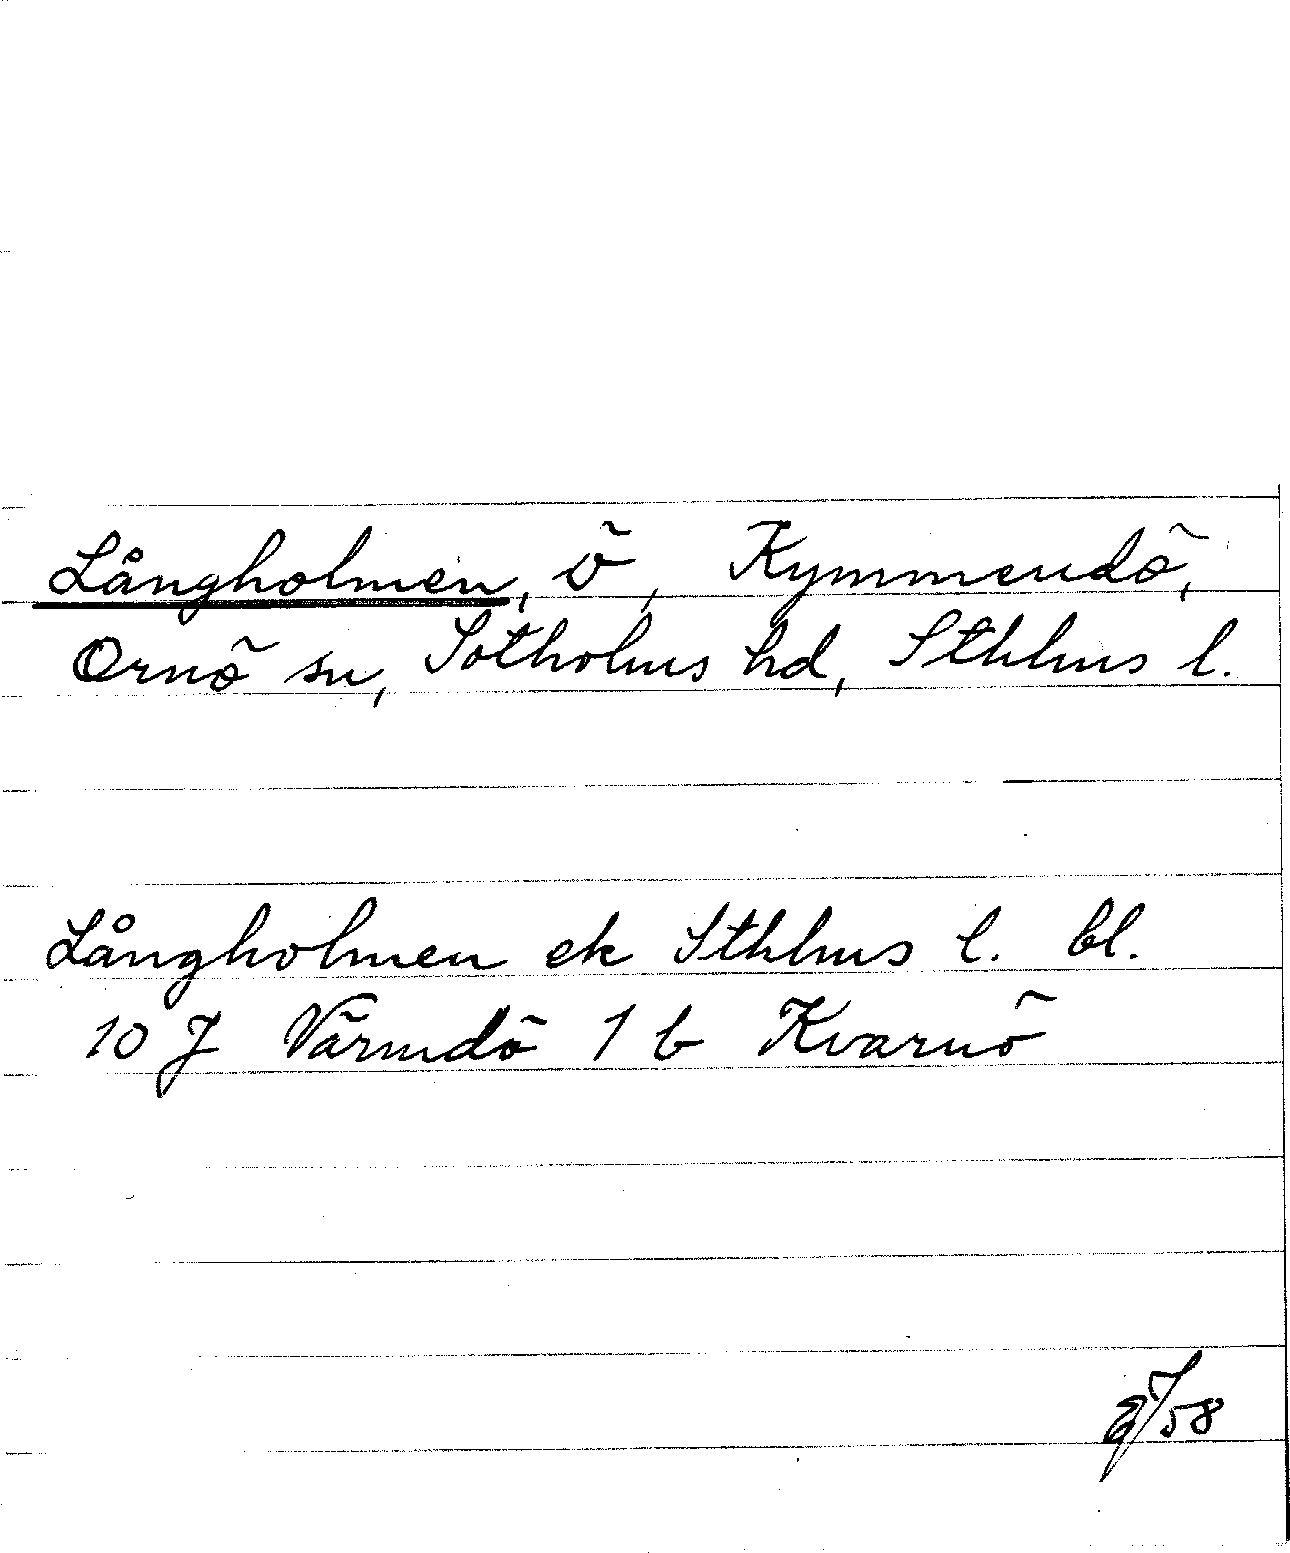 Långholmen, ö, Kymmendö,
Ornö sn, Sotholms hd, Sthlms l.
Långholmen ek Sthlms l. bl.
10 J Värmdö 1 b Kvarnö
/58